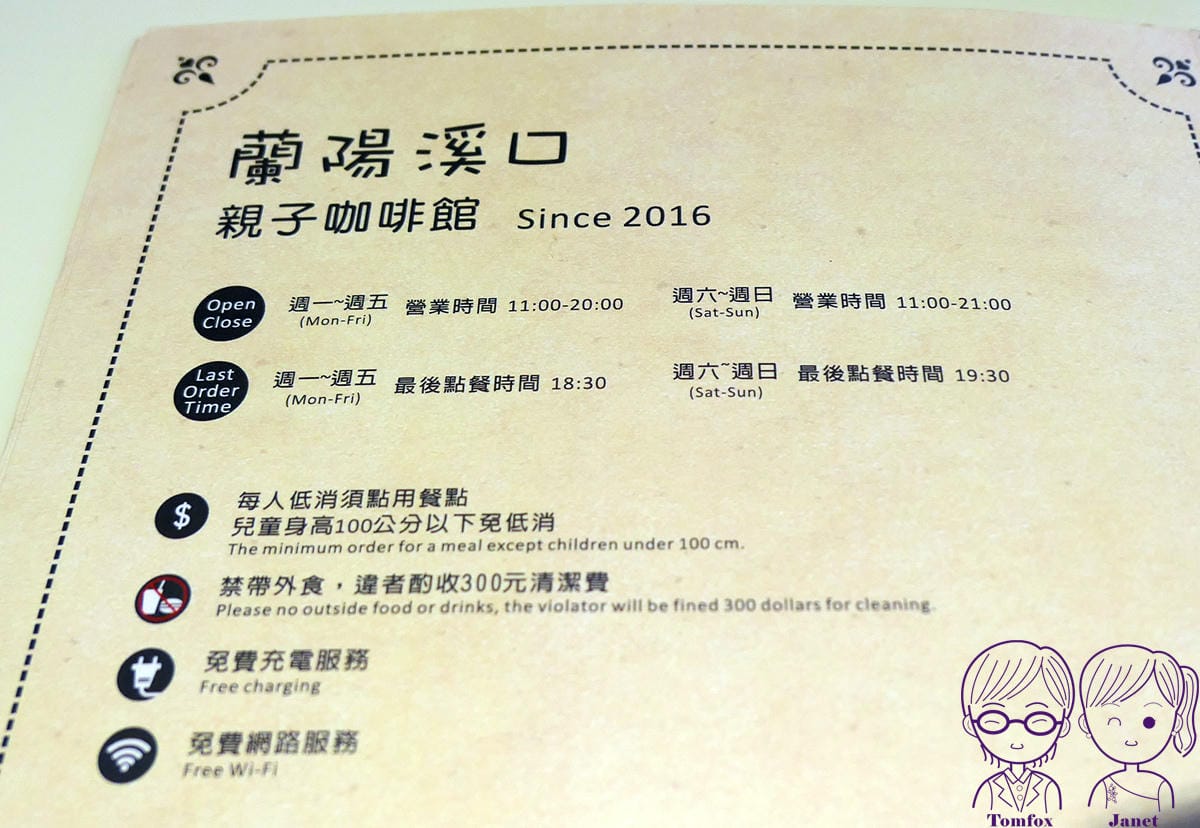 蘭陽溪口
親子咖啡館 Since 2016
Open Close 週一~週五 (Mon-Fri) 營業時間 11:00-20:00 週六~週日 (Sat-Sun) 營業時間 11:00-21:00
Last Order Time 週一~週五 (Mon-Fri) 最後點餐時間 18:30 週六~週日 (Sat-Sun) 最後點餐時間 19:30
$
每人低消須點用餐點
兒童身高100公分以下免低消
The minimum order for a meal except children under 100 cm.
禁帶外食，違者酌收300元清潔費
Please no outside food or drinks, the violator will be fined 300 dollars for cleaning.
免費充電服務
Free charging
免費網路服務
Free Wi-Fi
Tomfox Janet